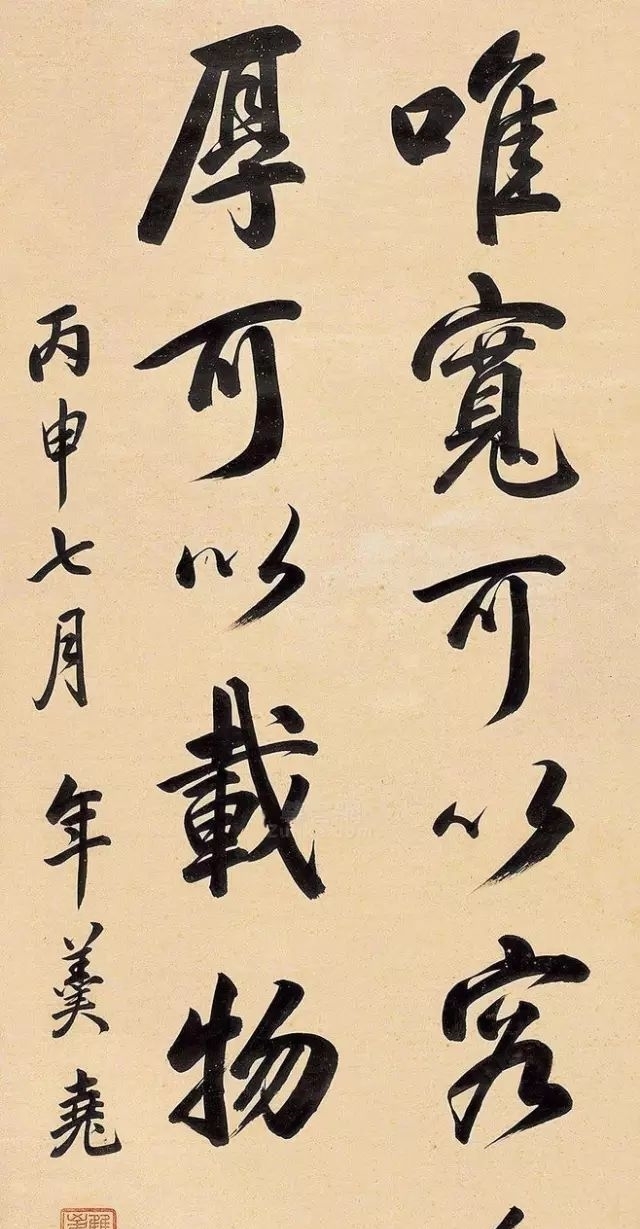 唯寬可以容
厚可以載物
丙申七月 年羹堯